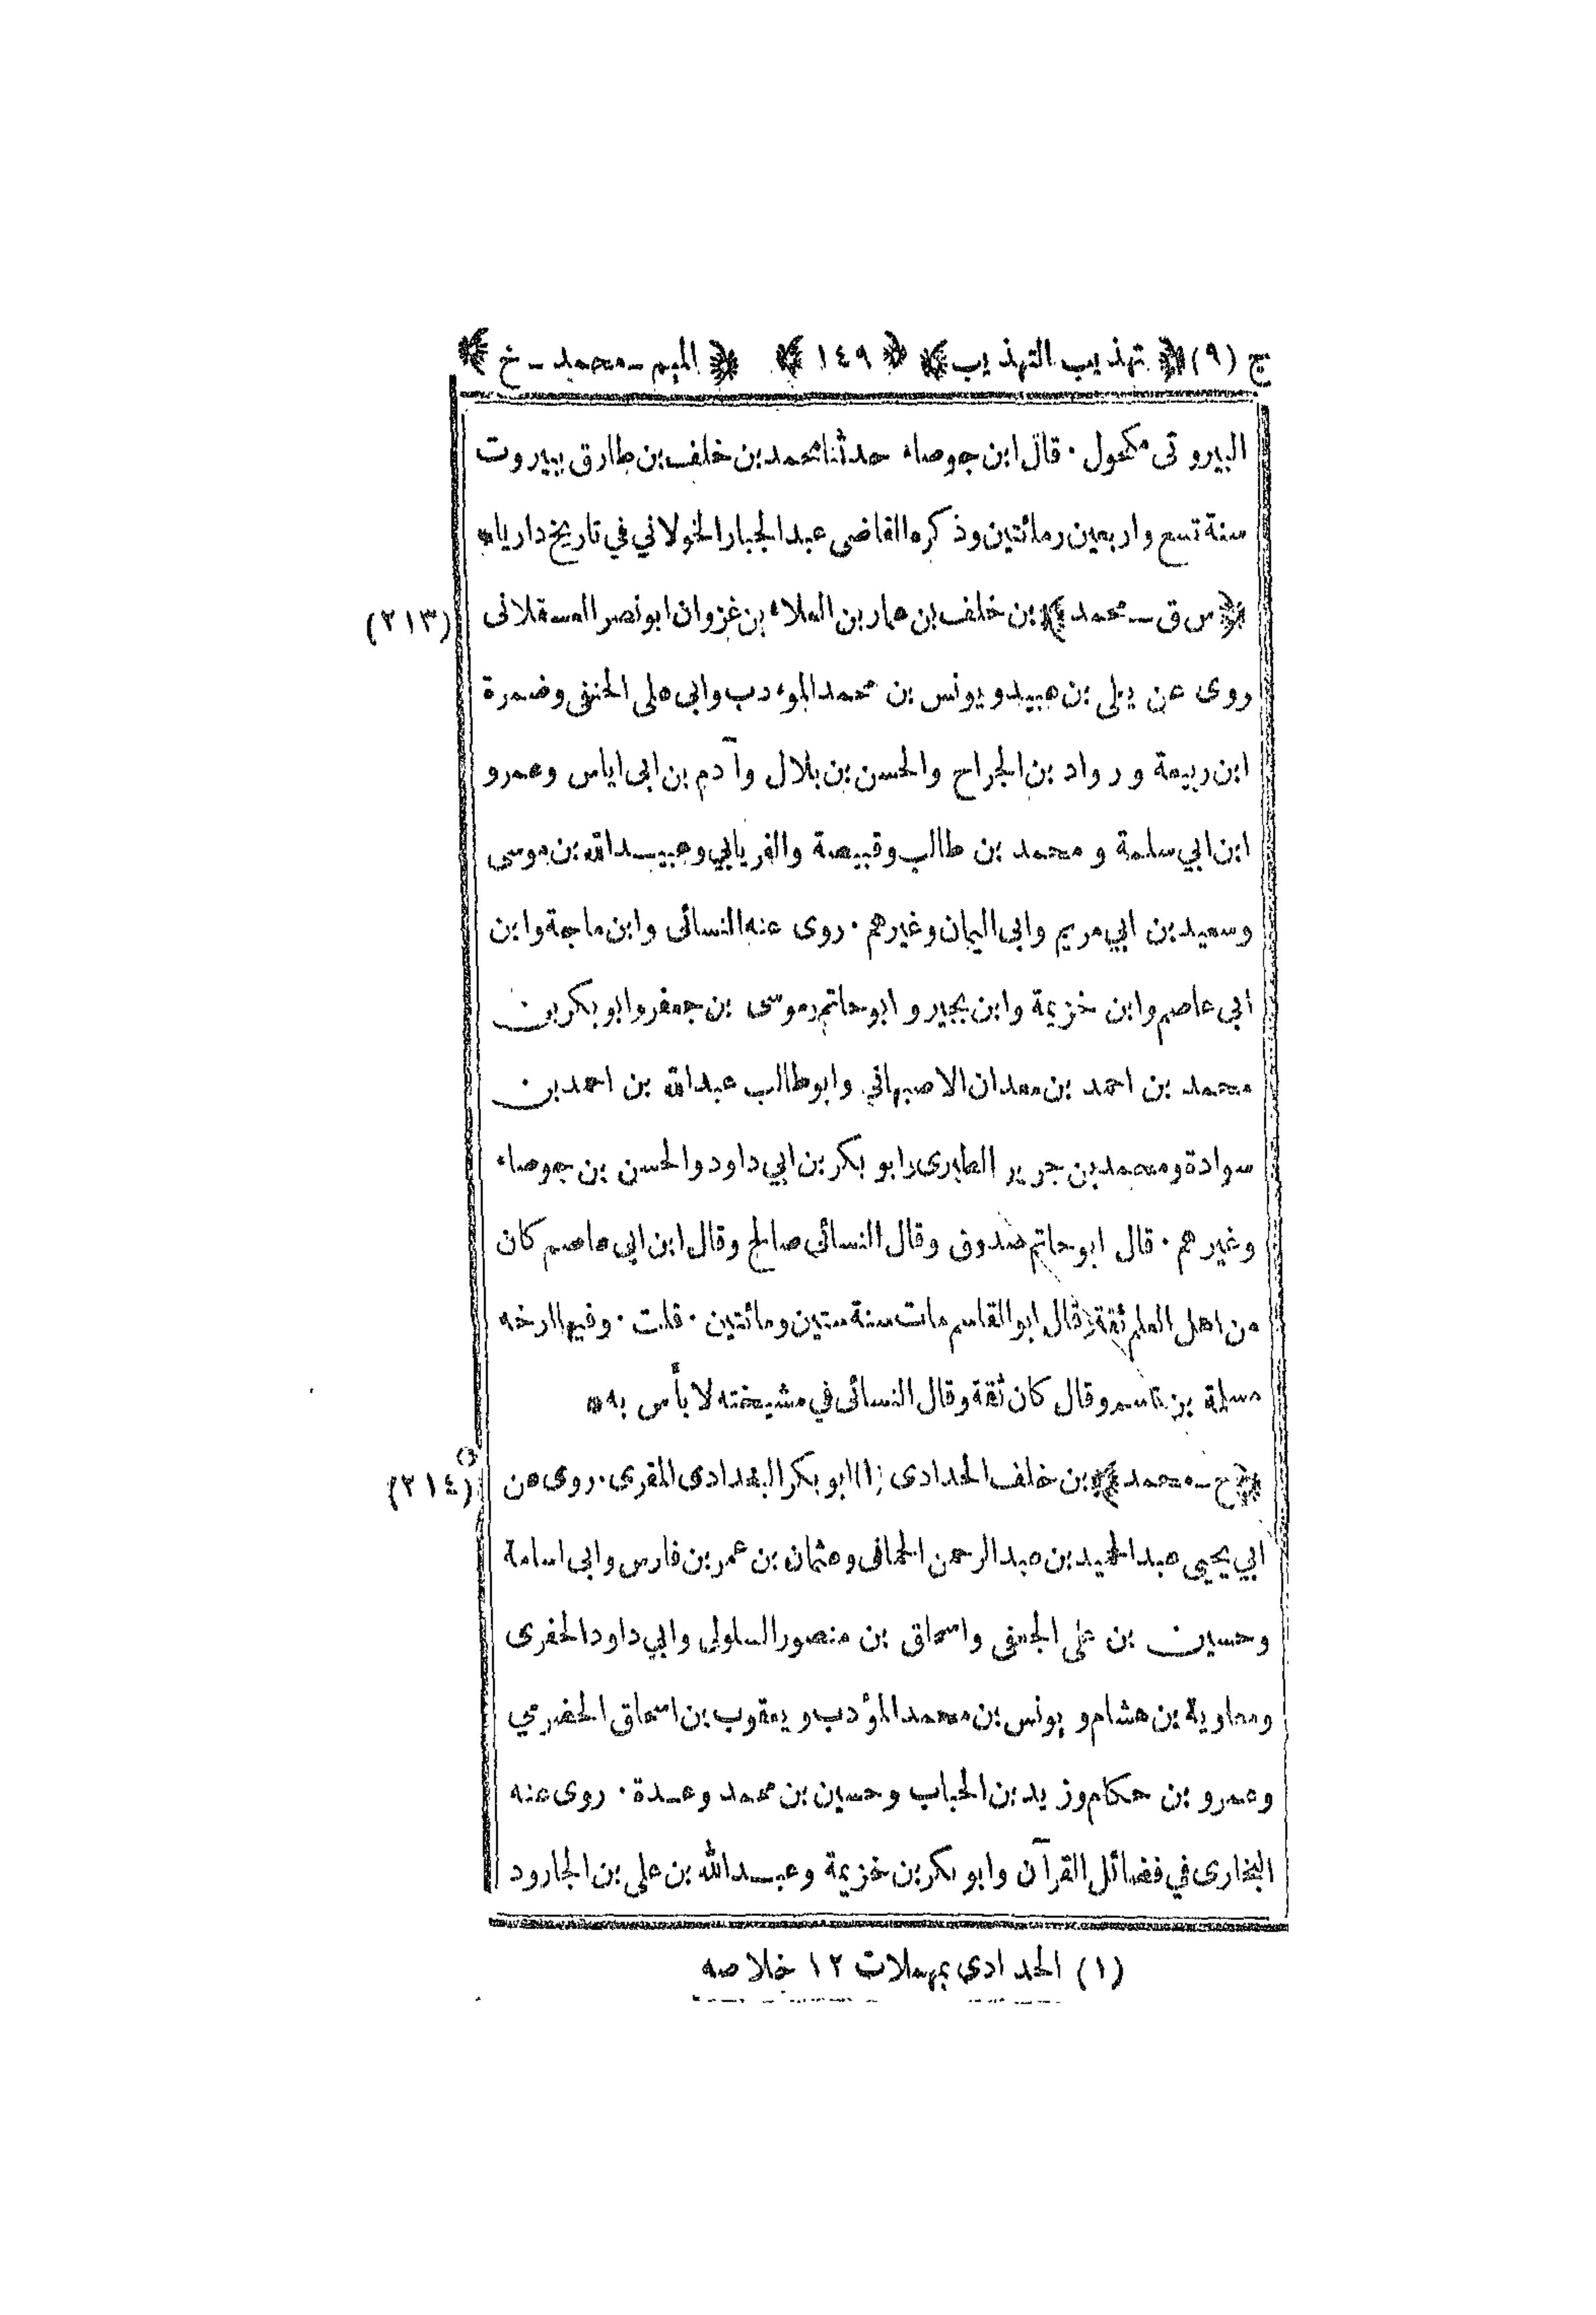 ج (٩) ﴿ تهذيب التهذيب ﴾ ﴿ ١٤٩ ﴾ ﴿ الميم ـ محمد ـ خ ﴾
البيروتى مكحول · قال ابن جوصاء حدثنا محمد بن خلف بن طارق ببيروت
سنة تسع واربعين ومائتين وذكره القاضى عبد الجبار الخولاني في تاريخ داريا *
﴿ س ق ـ محمد ﴾ بن خلف بن عمار بن العلاء بن غزوان ابو نصر العسقلانى
(٢١٣)
روى عن يعلى بن عبيد ويونس بن محمد الموءدب وابى على الحنفى وضمرة
ابن ربيعة و رواد بن الجراح والحسن بن بلال وآدم بن ابى اياس وعمرو
ابن ابي سلمة و محمد بن طالب وقبيصة والفريابي وعبيد الله بن موسى
وسعيد بن ابي مريم وابى اليمان وغيرهم · روى عنه النسائى وابن ماجة وابن
ابى عاصم وابن خزيمة وابن بجير و ابو حاتم وموسى بن جعفر وابو بكر بن
محمد بن احمد بن معدان الاصبهاني وابو طالب عبد الله بن احمد بن
سوادة ومحمد بن جرير الطبرى وابو بكر بن ابي داود والحسن بن جوصاء
وغيرهم · قال ابو حاتم صدوق وقال النسائى صالح وقال ابن ابى عاصم كان
من اهل العلم ثقة وقال ابو القاسم مات سنة ستين ومائتين · قلت · وفيها ارخه
مسلمة بن قاسم وقال كان ثقة وقال النسائى في مشيخته لا بأس به *
﴿ خ ـ محمد ﴾ بن خلف الحدادى (١) ابو بكر البغدادى المقرى · روى عن
(٢١٤)
ابي يحيى عبد الحميد بن عبد الرحمن الحمانى وعثمان بن عمر بن فارس وابى اسامة
وحسين بن على الجعفى واسحاق بن منصور السلولى وابي داود الحفرى
ومعاوية بن هشام و يونس بن محمد المؤدب و يعقوب بن اسحاق الحضرمي
وعمرو بن حكام وزيد بن الحباب وحسين بن محمد وعدة · روى عنه
البخارى في فضائل القرآن وابو بكر بن خزيمة وعبد الله بن على بن الجارود
(١) الحدادى بمهملات ١٢ خلاصه